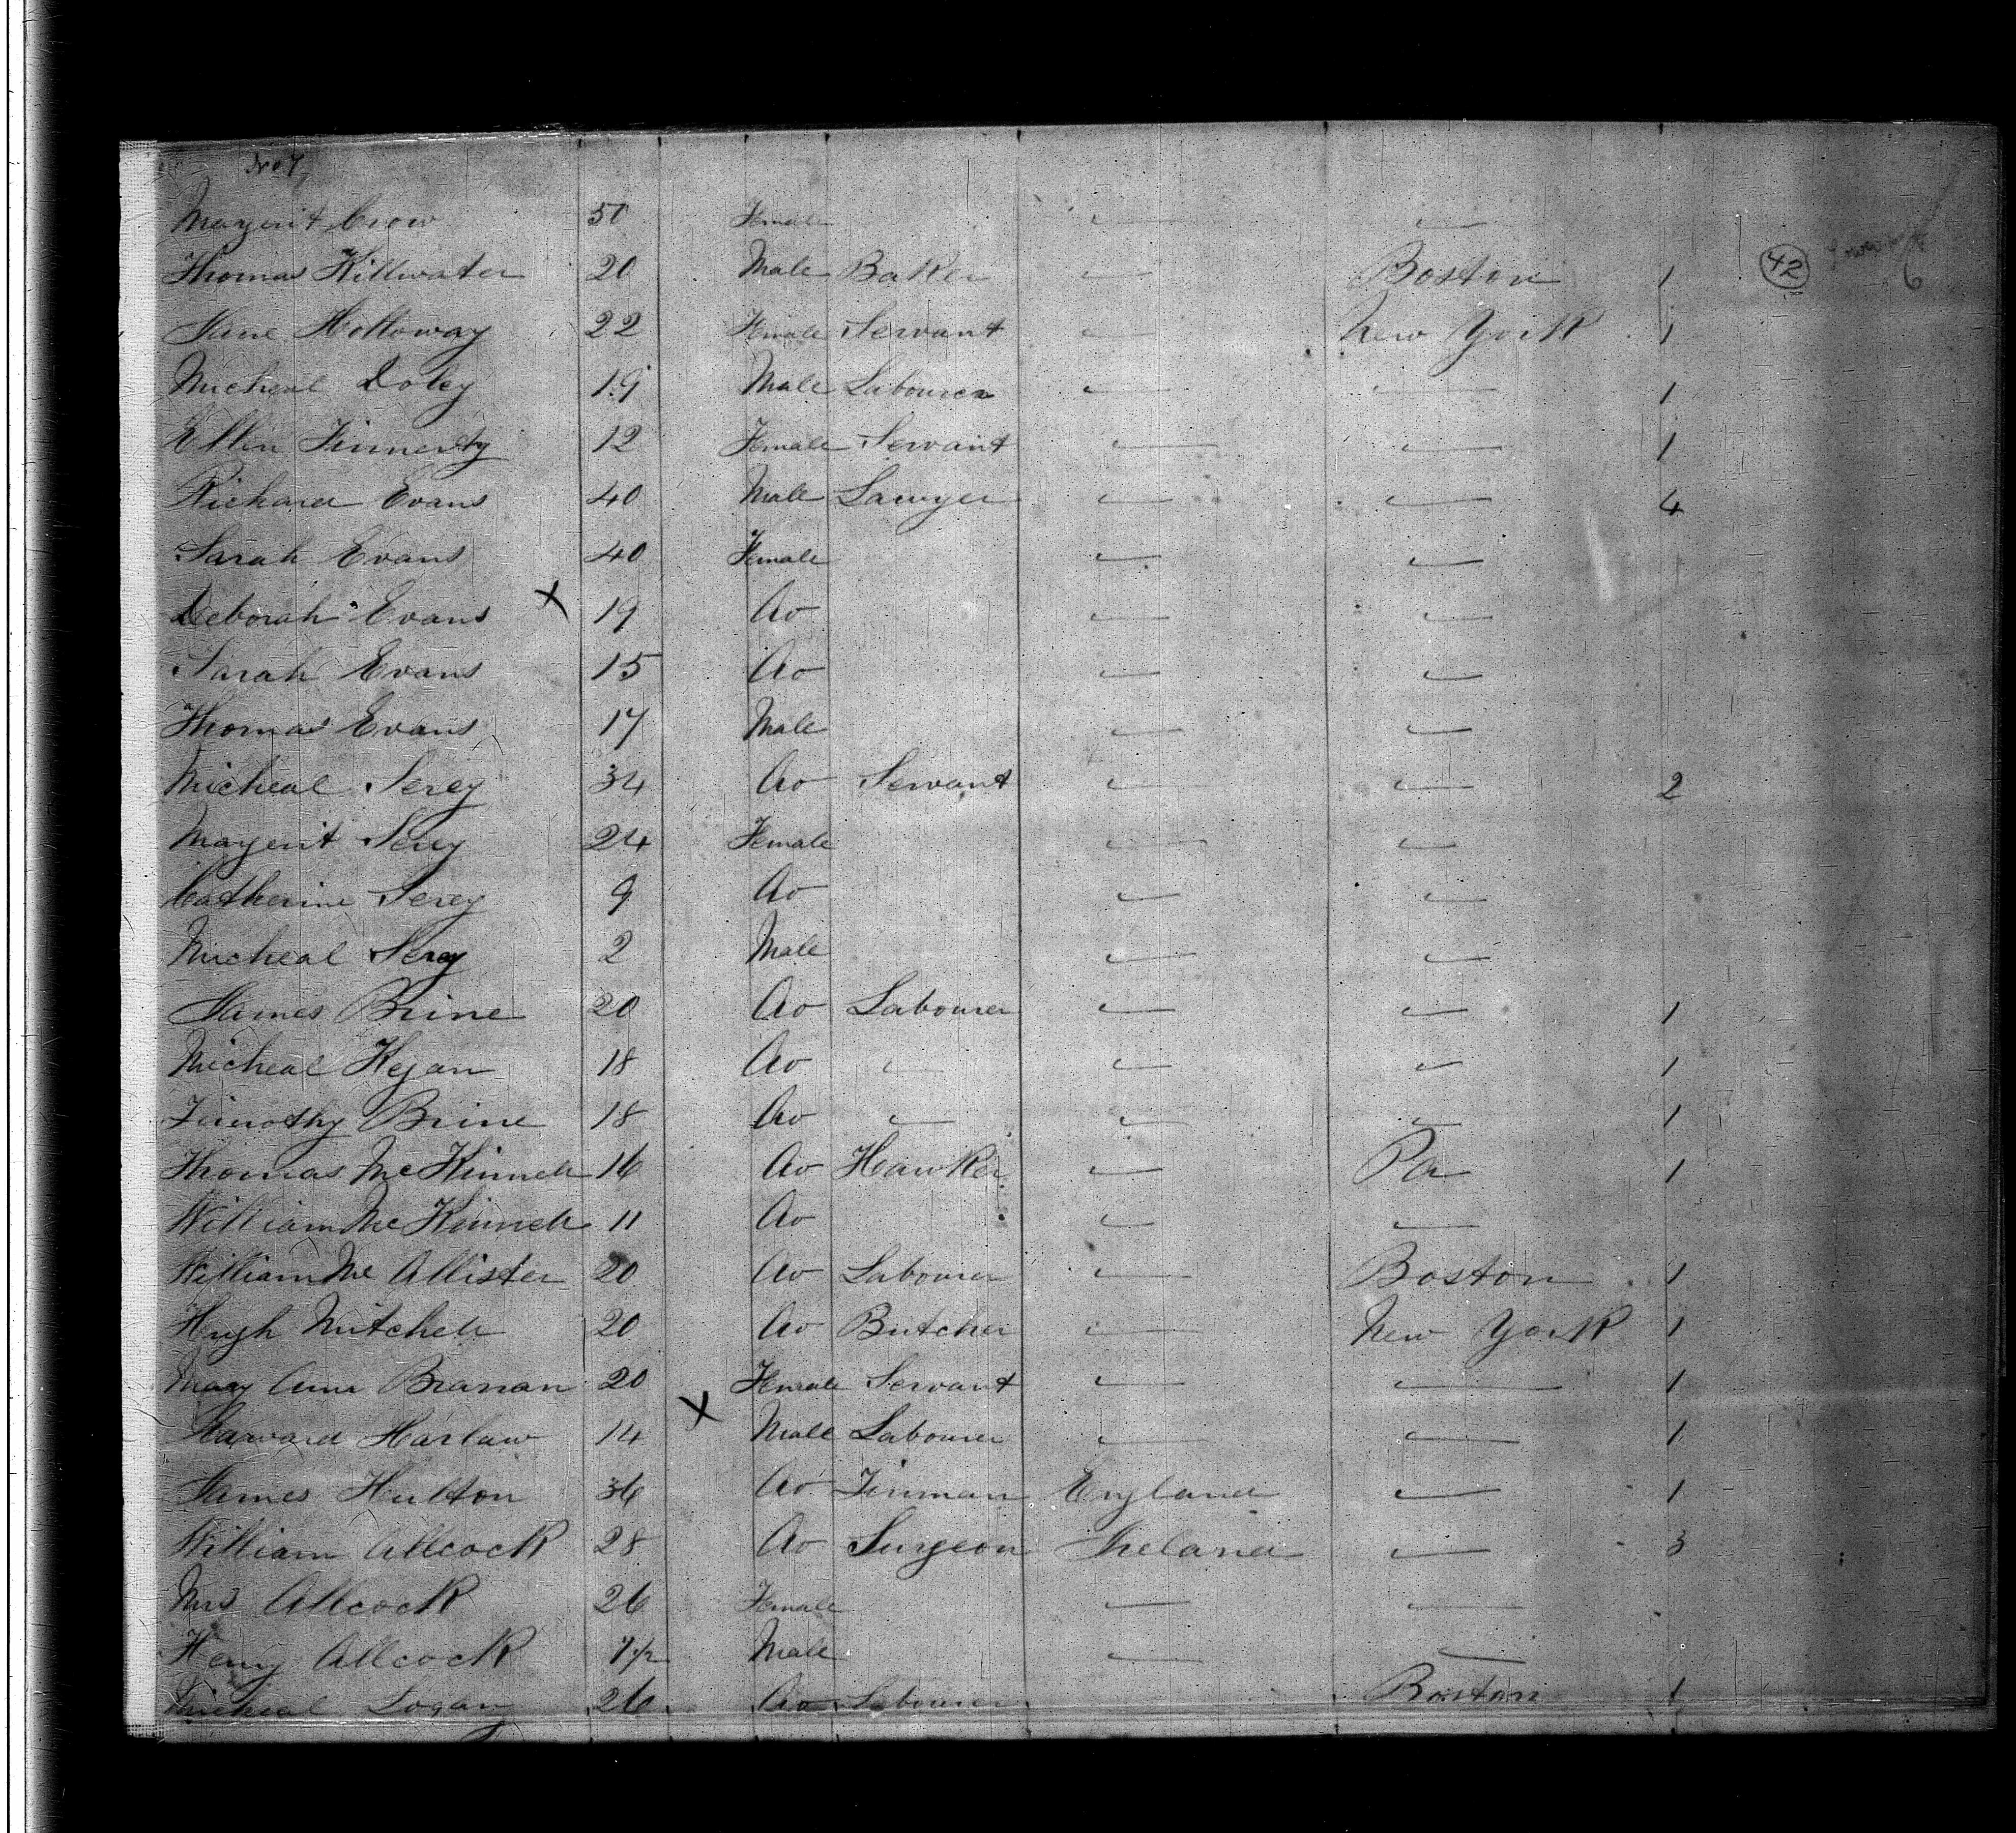 No 7
Margerit Crow 50 Female — —
Thomas Killwater 20 Male Baker — Boston 1 42 6
Jane Holloway 22 Female Servant — New York 1
Micheal Doley 19 Male Labourer — — 1
Ellin Finnerty 12 Female Servant — — 1
Richard Evans 40 Male Sawyer — — 4
Sarah Evans 40 Female — —
Deborah Evans X 19 do — —
Sarah Evans 15 do — —
Thomas Evans 17 Male — —
Micheal Serey 34 do Servant — — 2
Margerit Serey 24 Female — —
Catherine Serey 9 do — —
Micheal Serey 2 Male — —
James Brine 20 do Labourer — — 1
Micheal Kegan 18 do — — — 1
Timothy Brine 18 do — — — 1
Thomas McKinnell 16 do Hawker — Pa 1
William McKinnell 11 do — —
William McAllister 20 do Labourer — Boston 1
Hugh Mitchell 20 do Butcher — New York 1
Mary Ann Branan 20 Female Servant — — 1
Harlaw 14 X Male Labourer — — 1
James Hulton 36 do Tinman England — 1
William Allcock 28 do Surgeon Ireland — 3
Mrs Allcock 26 Female — —
Henry Allcock 1½ Male — —
Micheal Logan 26 do Labourer Boston 1